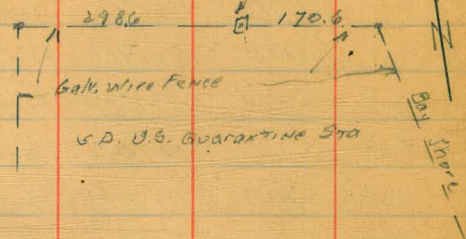 298.6 170.6
N
Galv. Wire Fence
S.D. U.S. Quarantine Sta
Bay Shore